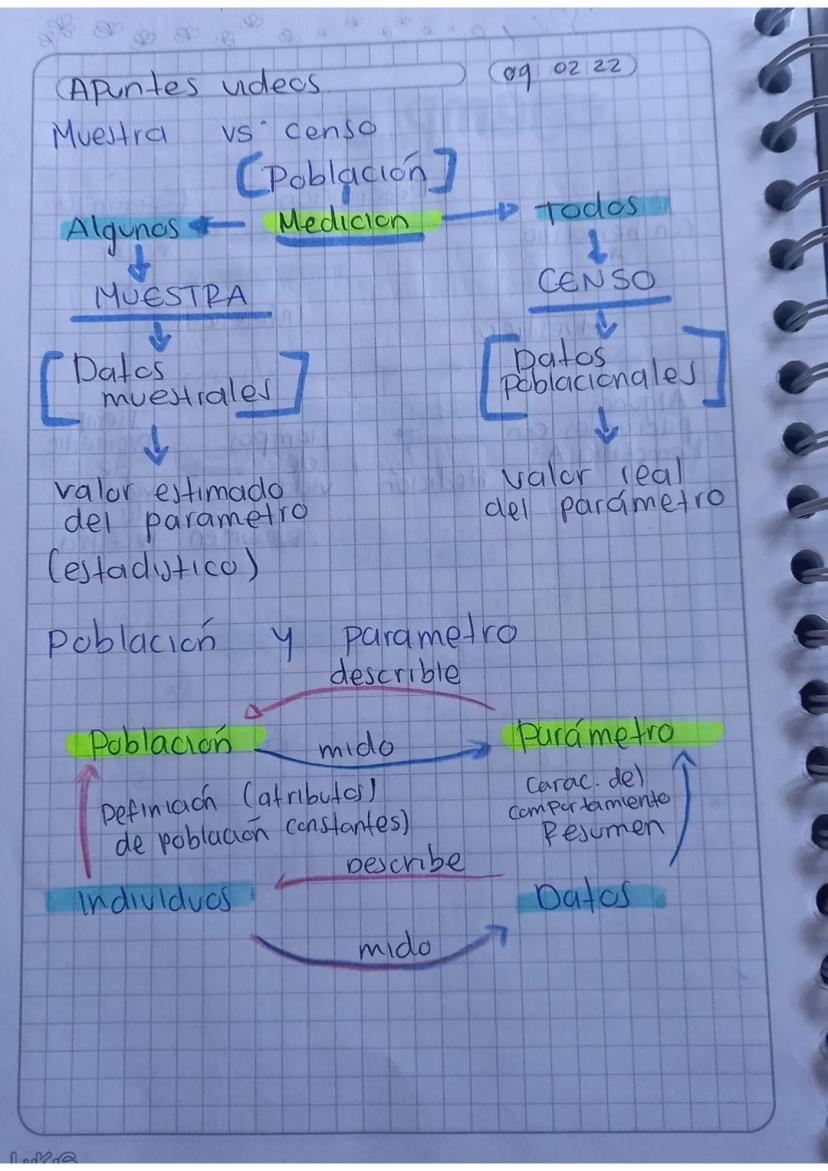 Apuntes videos
09 02 22
Muestra vs censo
[Población]
Algunos Medicion Todos
MUESTRA CENSO
[Datos muestrales]
[Datos poblacionales]
valor estimado
del parametro
(estadistico)
valor real
del parámetro
Población y parametro
describle
Población mido Parámetro
Definición (atributos)
de población constantes)
Carac. del
comportamiento
Resumen
Describe
Individuos Datos
mido